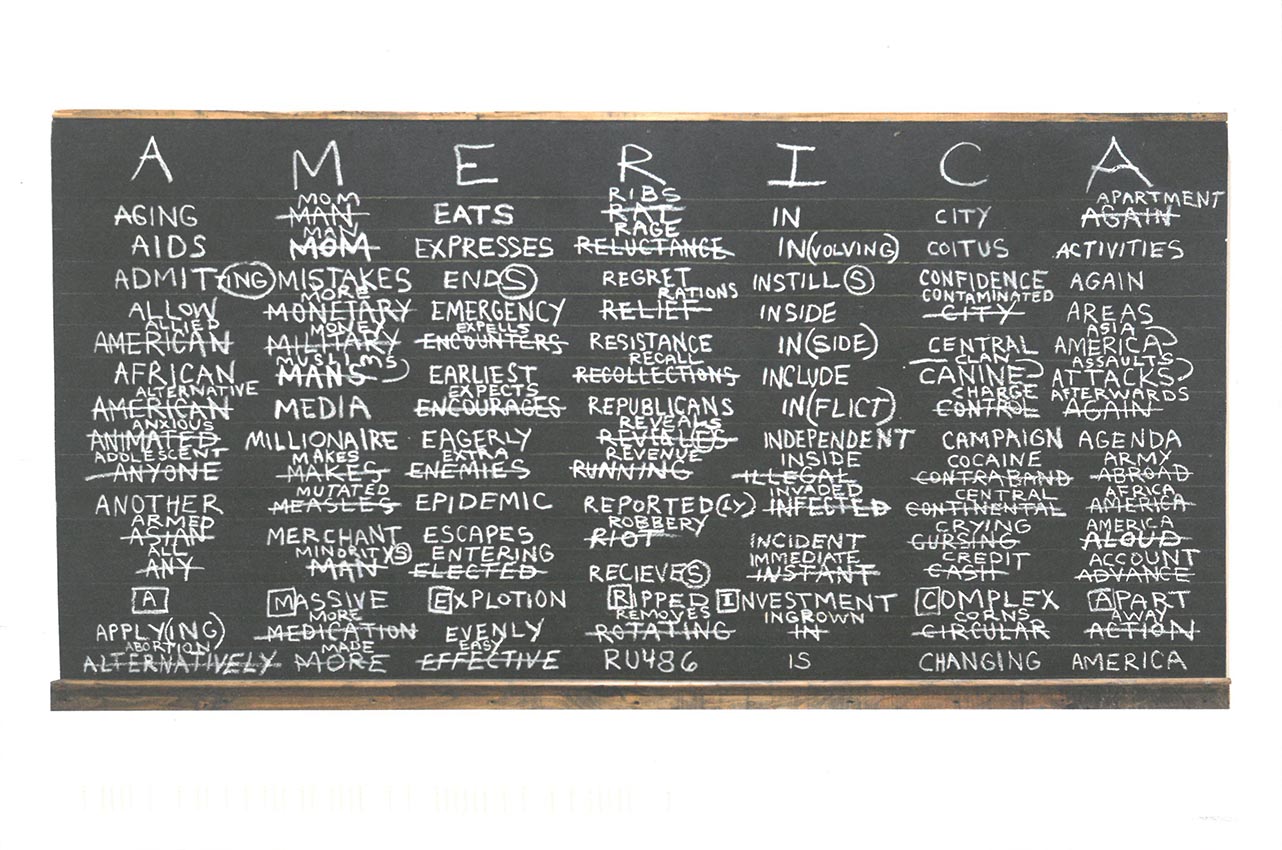 A M E R I C A
MOM RIBS APARTMENT
AGING MAN EATS RAT IN CITY AGAIN
MAN RAGE
AIDS MOM EXPRESSES RELUCTANCE IN(VOLVING) COITUS ACTIVITIES
ADMITTING MISTAKES ENDS REGRET INSTILLS CONFIDENCE AGAIN
MORE RATIONS CONTAMINATED
ALLOW MONETARY EMERGENCY RELIEF INSIDE CITY AREAS
ALLIED MONEY EXPELLS ASIA
AMERICAN MILITARY ENCOUNTERS RESISTANCE IN(SIDE) CENTRAL AMERICA
MUSLIMS RECALL CLAN ASSAULTS
AFRICAN MANS EARLIEST RECOLLECTIONS INCLUDE CANINE ATTACKS
ALTERNATIVE EXPECTS CHARGE AFTERWARDS
AMERICAN MEDIA ENCOURAGES REPUBLICANS IN(FLICT) CONTROL AGAIN
ANXIOUS REVEALS
ANIMATED MILLIONAIRE EAGERLY REVEALES INDEPENDENT CAMPAIGN AGENDA
ADOLESCENT MAKES EXTRA REVENUE INSIDE COCAINE ARMY
ANYONE MAKES ENEMIES RUNNING ILLEGAL CONTRABAND ABROAD
MUTATED INVADED CENTRAL AFRICA
ANOTHER MEASLES EPIDEMIC REPORTED(LY) INFECTED CONTINENTAL AMERICA
ARMED ROBBERY CRYING AMERICA
ASIAN MERCHANT ESCAPES RIOT INCIDENT CURSING ALOUD
ALL MINORITYS ENTERING IMMEDIATE CREDIT ACCOUNT
ANY MAN ELECTED RECIEVES INSTANT CASH ADVANCE
A MASSIVE EXPLOTION RIPPED INVESTMENT COMPLEX APART
MORE REMOVES INGROWN CORNS AWAY
APPLY(ING) MEDICATION EVENLY ROTATING IN CIRCULAR ACTION
ABORTION) MADE EASY
ALTERNATIVELY MORE EFFECTIVE RU486 IS CHANGING AMERICA